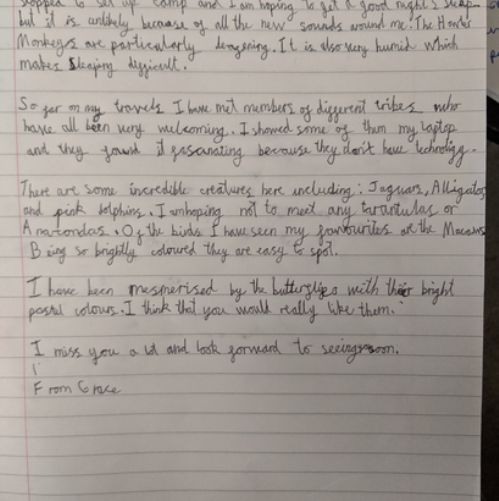 stopped to set up camp and I am hoping to get a good night's sleep
but it is unlikely because of all the new sounds around me. The Howler
Monkeys are particularly deafening. It is also very humid which
makes sleeping difficult.
So far on my travels I have met members of different tribes who
have all been very welcoming. I showed some of them my laptop
and they found it fascanating because they don't have technology.
There are some incredible creatures here including: Jaguars, Alligators
and pink dolphins. I am hoping not to meet any tarantulas or
Anacondas. Of the birds I have seen my favourites are the Macaws
Being so brightly coloured they are easy to spot.
I have been mesmerised by the butterflies with their bright
pastel colours. I think that you would really like them.
I miss you a lot and look forward to seeing soon.
From Grace